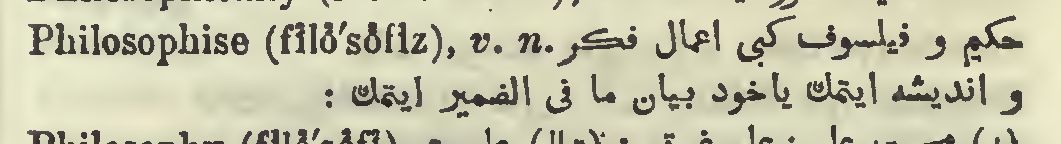 Philosophise (fĭlŏ′sŏfīz), v. n. حكيم و فيلسوف كبى اعمال فكر
و انديشه ايتمك ياخود بيان ما فى الضمير ايتمك :